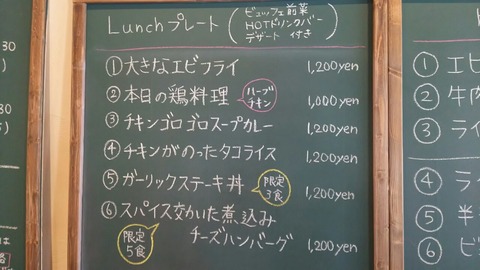 30
30
Lunchプレート
ビュッフェ前菜
HOTドリンクバー
デザート 付き
①大きなエビフライ 1,200yen
②本日の鶏料理 ハーブチキン 1,000yen
③チキンゴロゴロスープカレー 1,200yen
④チキンがのったタコライス 1,200yen
⑤ガーリックステーキ丼 限定3食 1,200yen
⑥スパイス交かいた煮込み
限定5食 チーズハンバーグ 1,200yen
①エビ
②牛肉
③ライ
④ライ
⑤半
⑥ビ